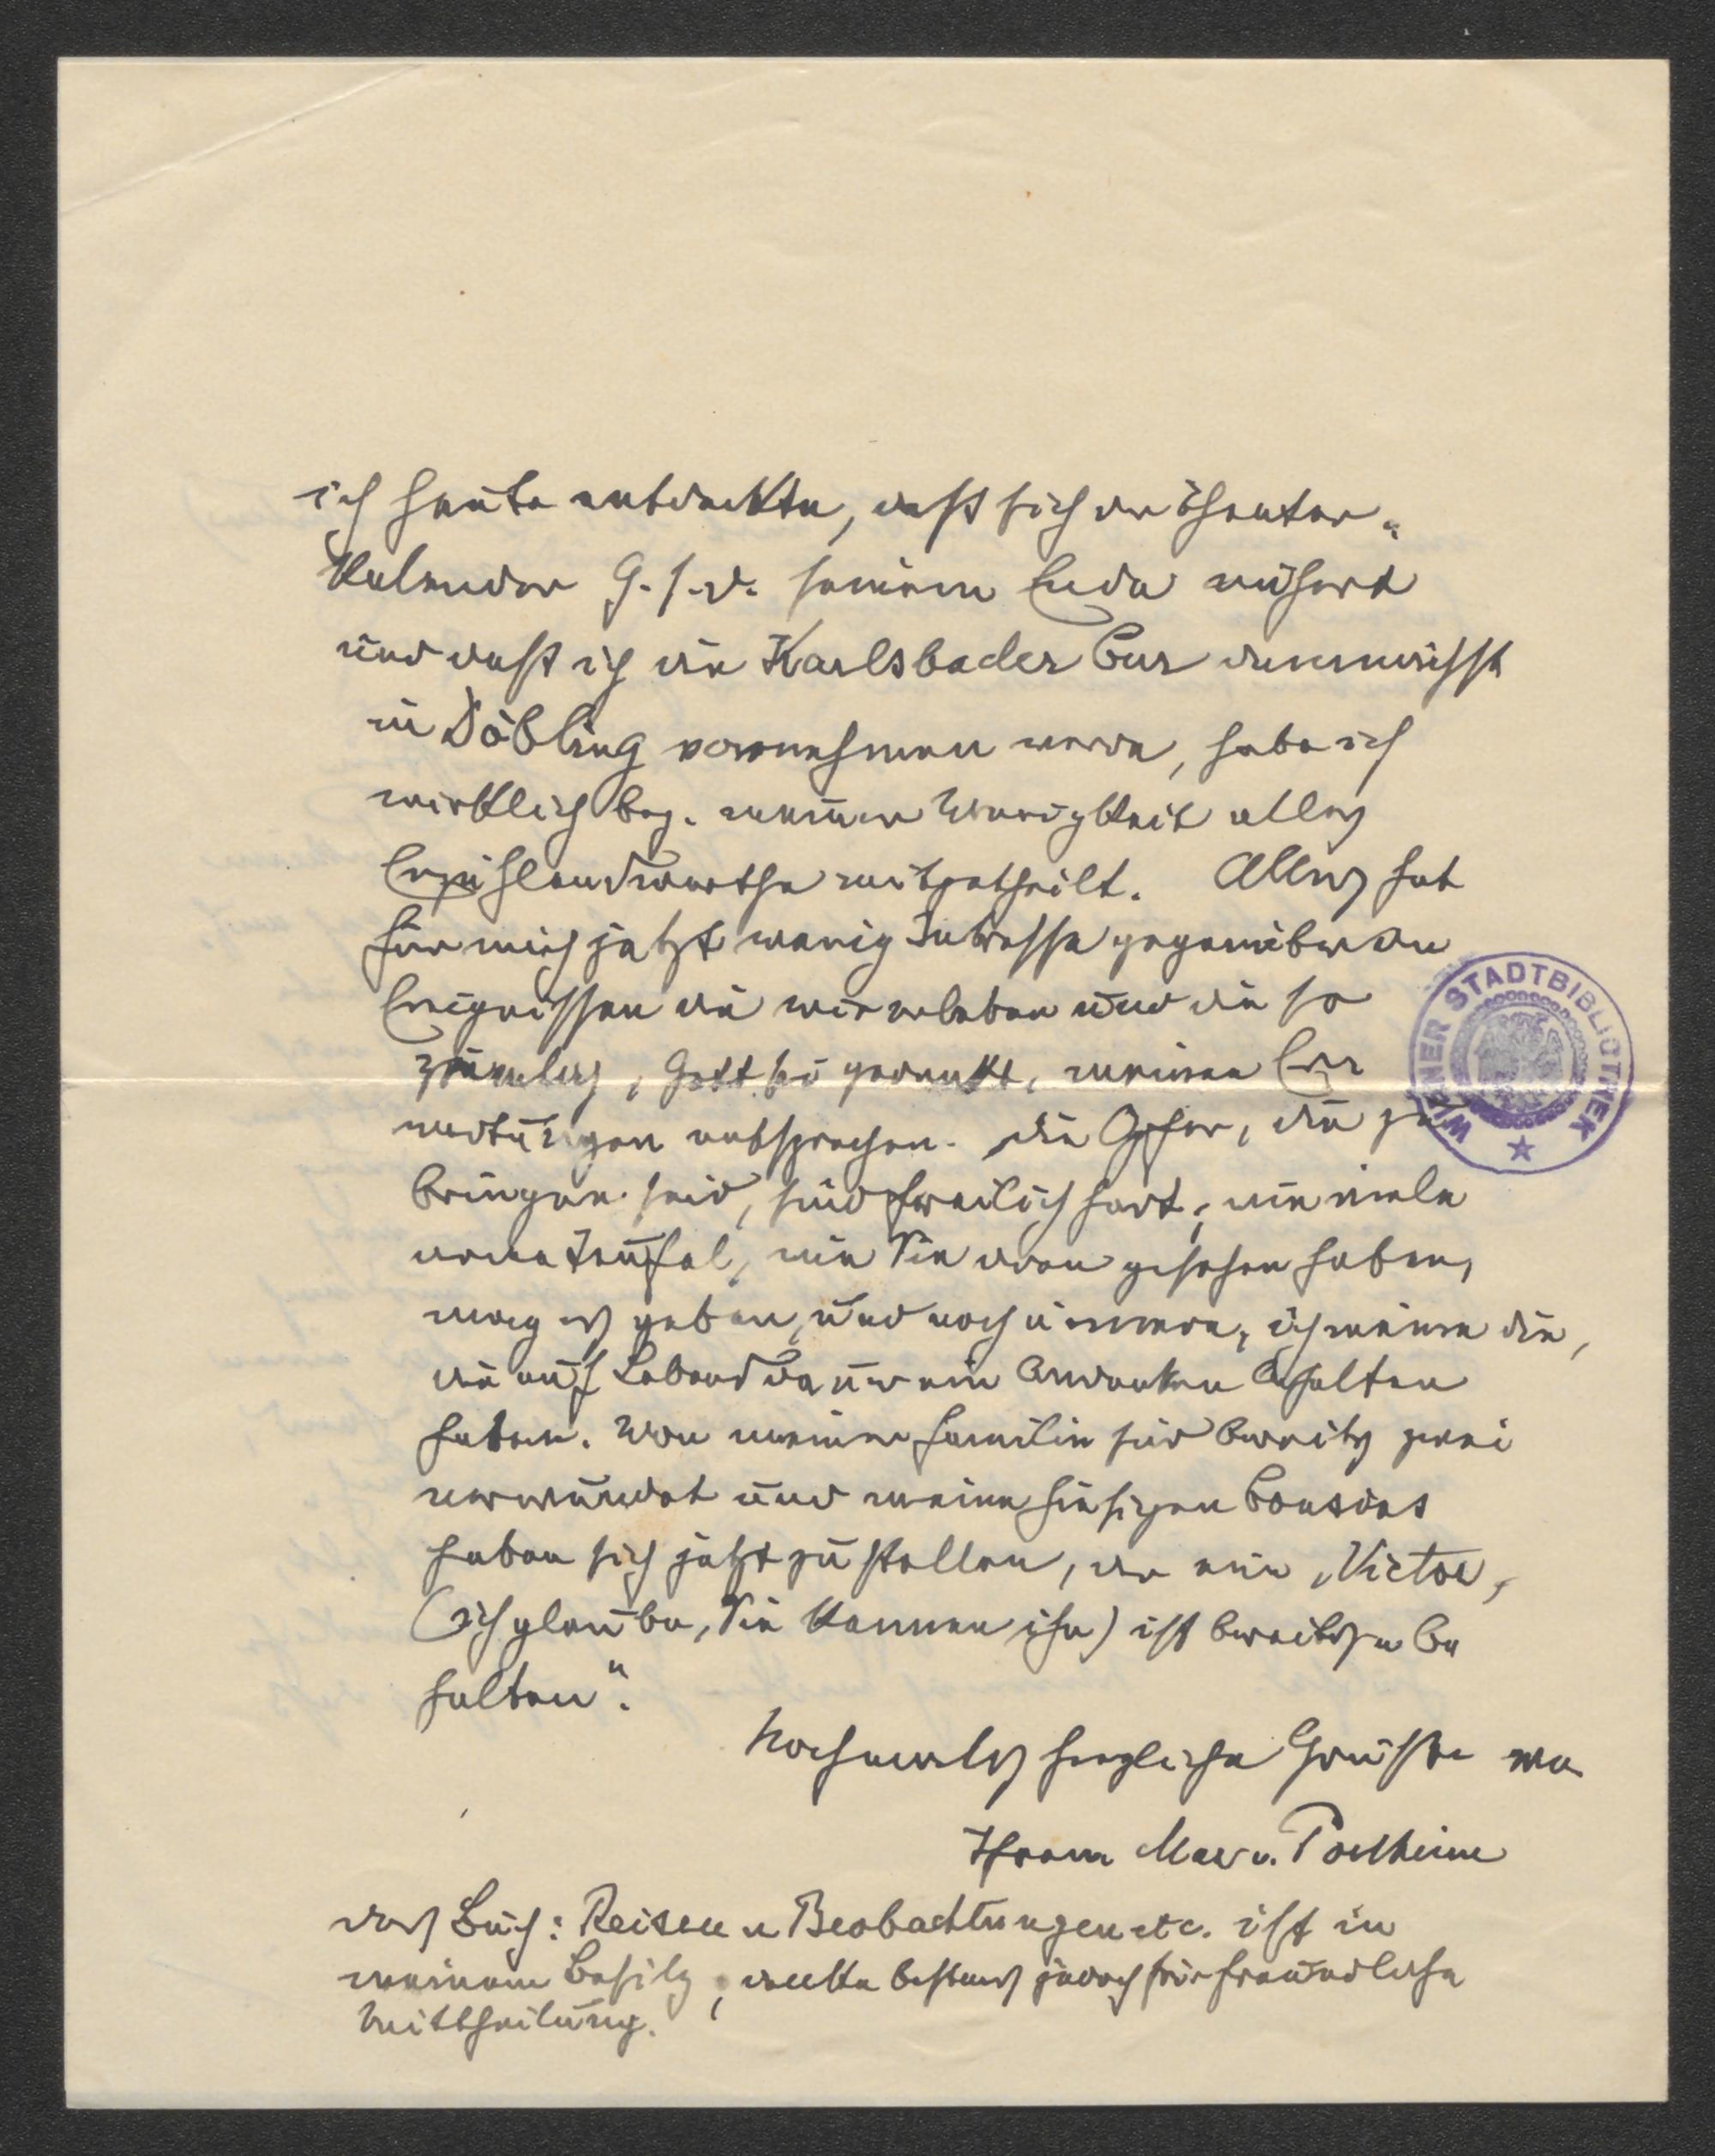 ich heute entdeckte, daß sich der Theater-
Kalender G. s. D. seinem Ende nähert
und daß ich die Karlsbader Cur demnächst
in Döbling vornehmen werde, habe ich
wirklich bez. meiner Wenigkeit alles
Erzählenswerthe mitgetheilt. Alles hat
für mich jetzt wenig Interesse gegenüber den
Ereignissen die wir erleben und die so
ziemlich, Gott sei gedankt, meinen Er
wartungen entsprechen. Die Opfer, die zu
bringen sind, sind freilich hart; wie viele
arme Teufel, wie Sie deren gesehen haben,
mag es geben, und noch ärmere, ich meine die,
die auf Lebensdauer ein Andenken erhalten
haben. Von meiner Familie sind bereits zwei
verwundet und meine hiesigen Cousins
haben sich jetzt zu stellen, der eine, Victor,
(ich glaube, Sie kennen ihn) ist bereits „be
halten".
Nochmals herzliche Grüße von
Ihrem Max v. Portheim
Das Buch: Reisen u Beobachtungen etc. ist in
meinem Besitz; danke bestens jedoch für freundliche
Mittheilung.
WIENER STADTBIBLIOTHEK